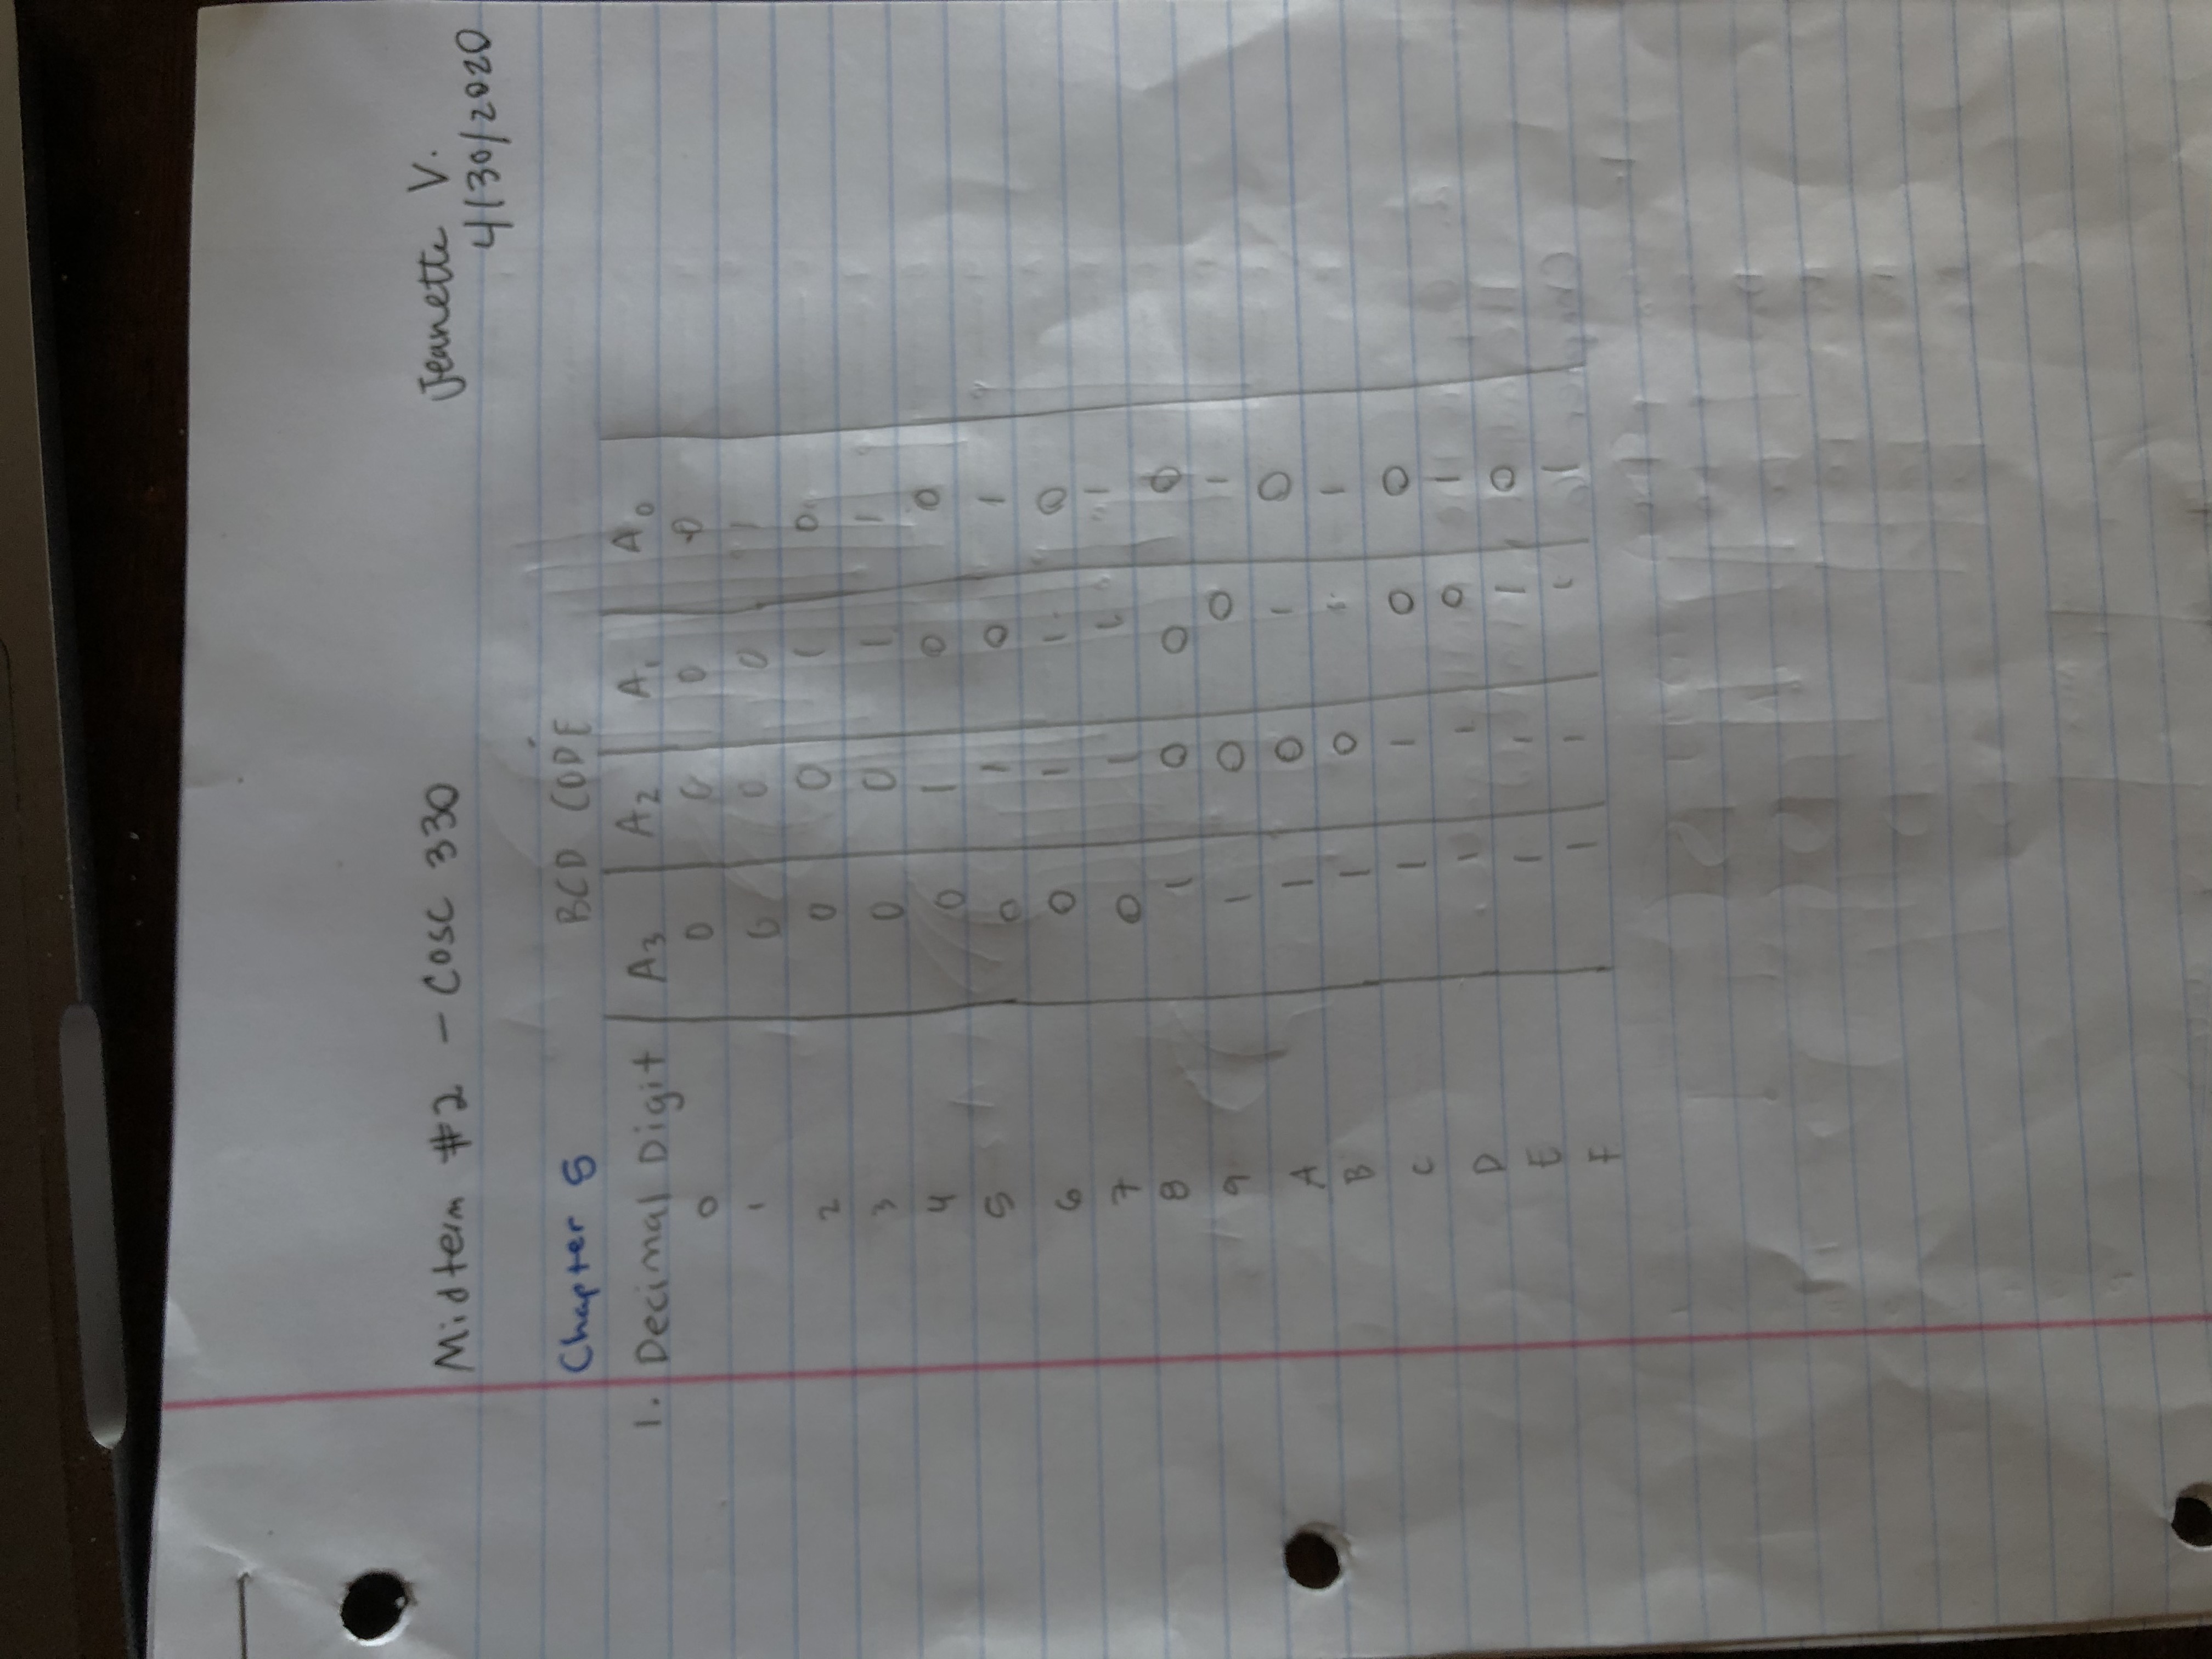 Midterm #2 - COSC 330
Jeanette V.
4/30/2020
Chapter 5
BCD CODE
1. Decimal Digit A3 A2 A1 A0
0 0 0 0 0
1 0 0 0 1
2 0 0 1 0
3 0 0 1 1
4 0 1 0 0
5 0 1 0 1
6 0 1 1 0
7 0 1 1 1
8 1 0 0 0
9 1 0 0 1
A 1 0 1 0
B 1 0 1 1
C 1 1 0 0
D 1 1 0 1
E 1 1 1 0
F 1 1 1 1